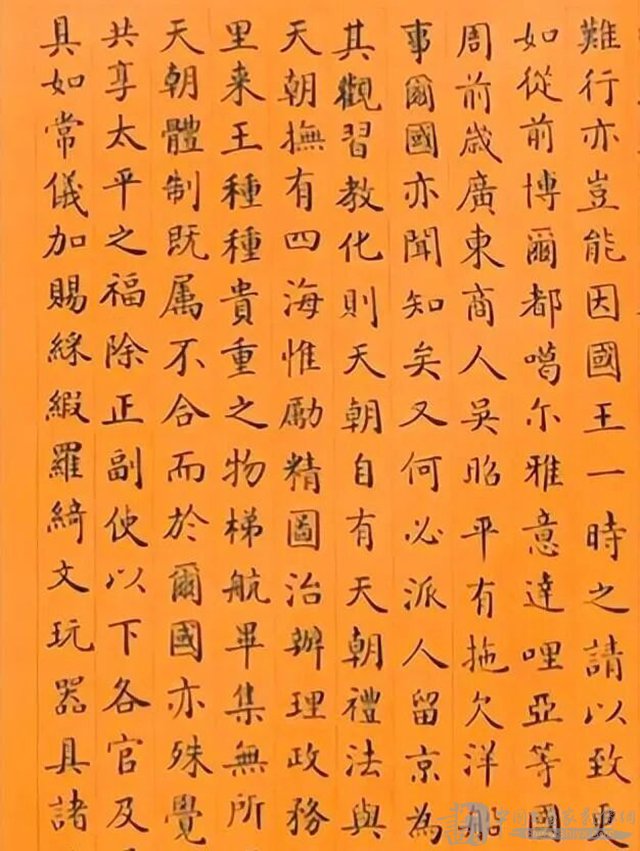 難行亦豈能因國王一時之請以致更
如從前博爾都噶尔雅意達哩亞等國
周前歲廣東商人吳昭平有拖欠洋船
事爾國亦聞知矣又何必派人留京為
其觀習教化則天朝自有天朝禮法與
天朝撫有四海惟勵精圖治辦理政務
里来王種種貴重之物梯航畢集無所
天朝體制既属不合而於爾國亦殊覺
共享太平之福除正副使以下各官及
具如常儀加賜綵緞羅綺文玩器具諸